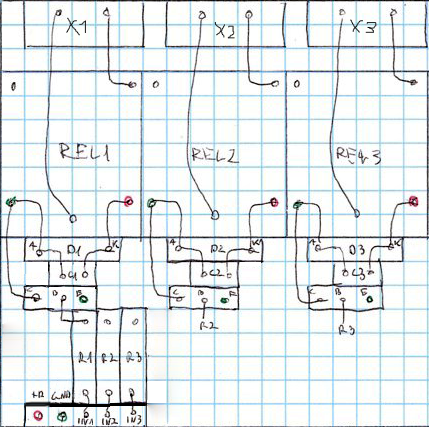 X1 X2 X3
REL1 REL2 REL3
A D1 K A D2 K A D3 K
C1 C2 C3
C B E C B E C B E
R2 R3
R1 R2 R3
+R GND IN1 IN2 IN3